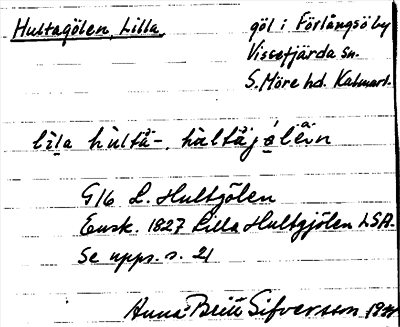 Hultagölen, Lilla göl i Förlångsö by
Vissefjärda sn.
S. Möre hd. Kalmar l.
lila hultä-, hultäjölän
G16 L. Hultgölen
Ensk. 1827 Lilla Hultgjölen LSA.
Se upps. s. 21
Anna-Britt Sifversson